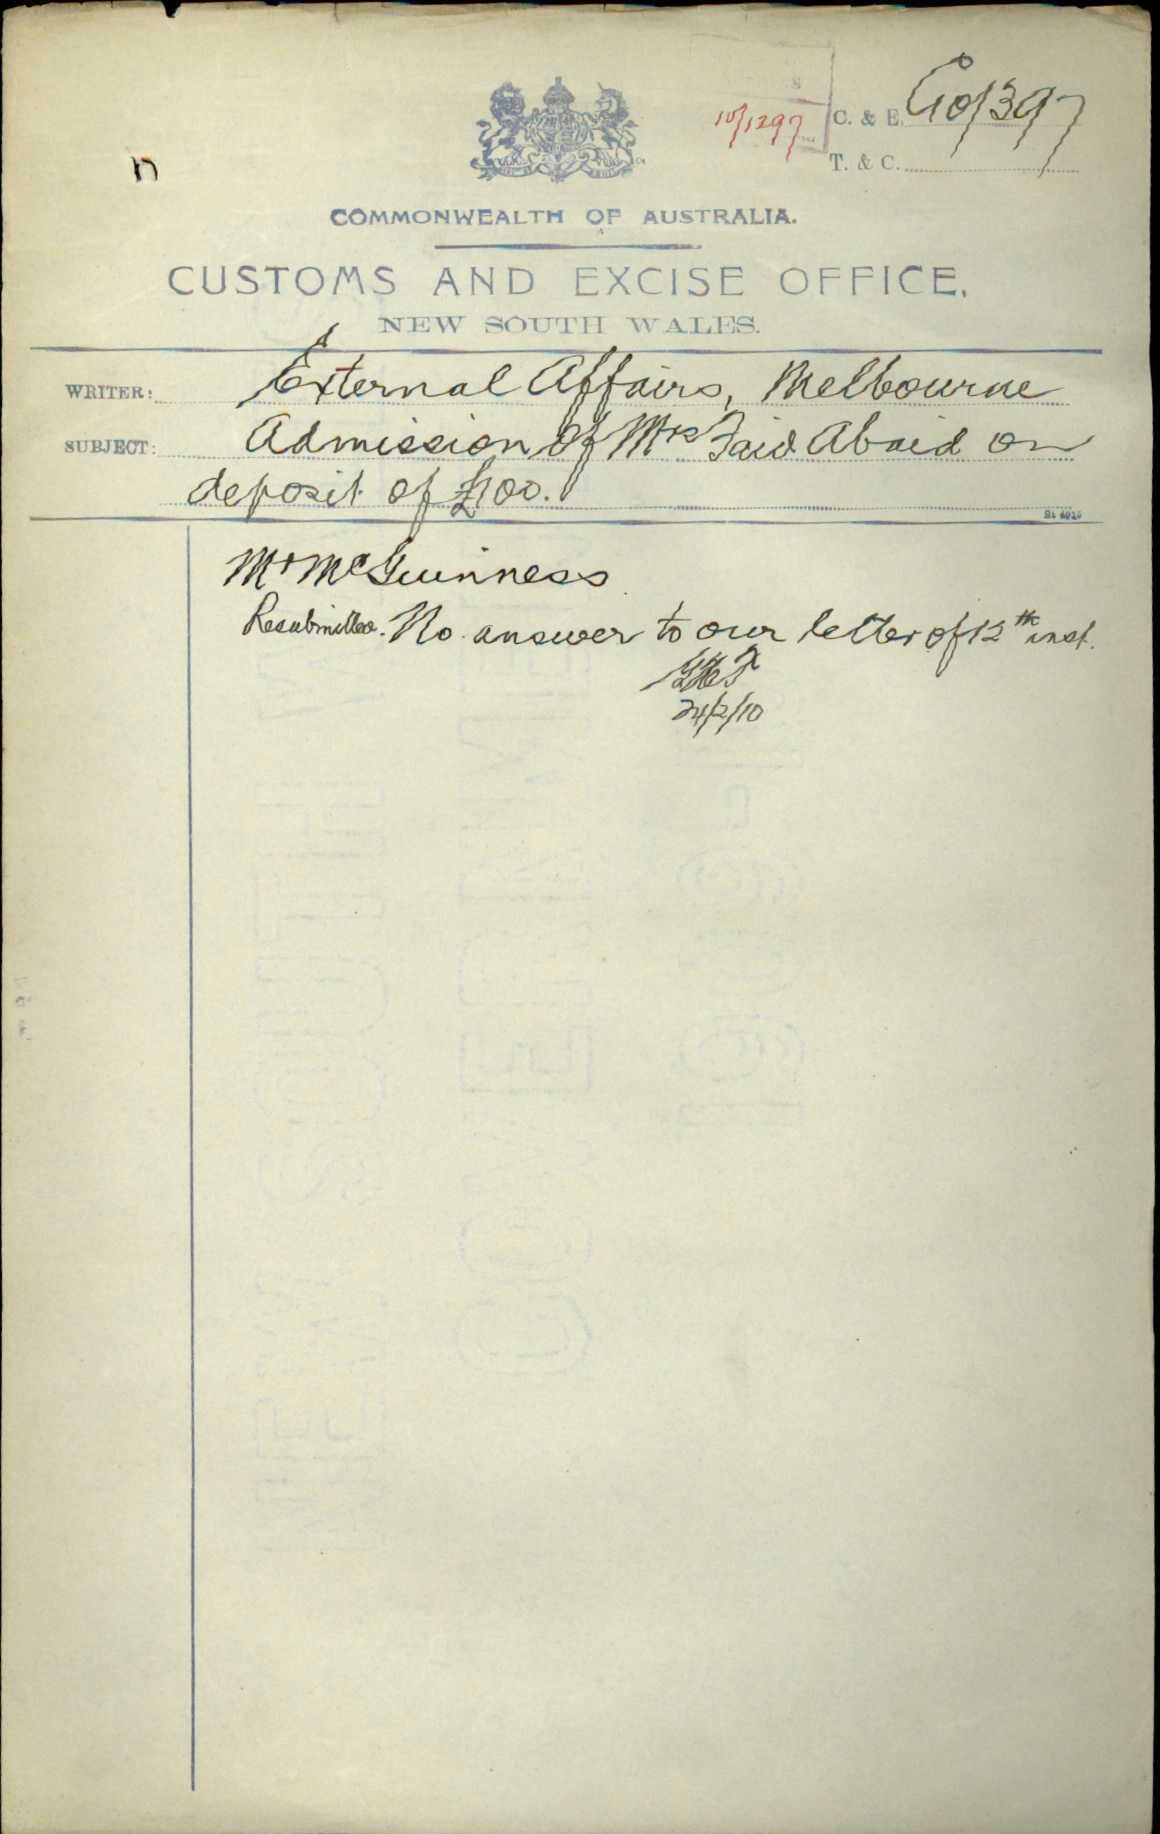 10/1297
C. & E. G10/397
T. & C.
n
COMMONWEALTH OF AUSTRALIA.
CUSTOMS AND EXCISE OFFICE,
NEW SOUTH WALES.
WRITER: External Affairs, Melbourne
SUBJECT: Admission of Mrs Faid Abaid on
deposit of £100.
St 4910
Mr McGuinness
Resubmitted. No answer to our letter of 12th inst.
24/2/10